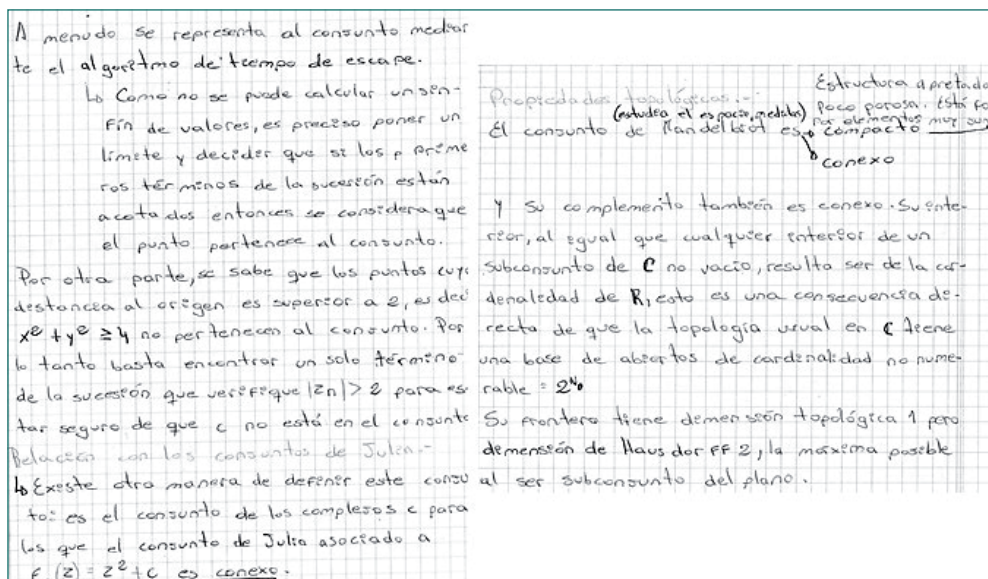 A menudo se representa al consunto median
te el algoritmo de tiempo de escape.
↳ Como no se puede calcular un sen-
fin de valores, es preciso poner un
límite y decidir que si los p prime
ros términos de la sucesión están
acotados entonces se considera que
el punto pertenece al consunto.
Por otra parte, se sabe que los puntos cuya
distancia al origen es superior a 2, es deci
x² + y² ≥ 4 no pertenecen al consunto. Por
lo tanto basta encontrar un solo término
de la sucesión que verifique |zn| > 2 para es
tar seguro de que c no está en el consunto
Relación con los consuntos de Julia.-
↳ Existe otra manera de definir este consu
to: es el consunto de los complejos c para
los que el consunto de Julia asociado a
f (z) = z² + c es conexo.
Propiedades topológicas.-
(estudia el espacio, medidas)
Estructura apretada
poco porosa. Está fo
por elementos muy
El consunto de Mandelbrot es compacto
conexo
Y su complemento también es conexo. Su inte-
rior, al igual que cualquier interior de un
subconsunto de C no vacio, resulta ser de la car-
dinalidad de R, esto es una consecuencia di-
recta de que la topología usual en C tiene
una base de abiertos de cardinalidad no nume-
rable = 2^ℵ₀
Su frontera tiene dimensión topológica 1 pero
dimensión de Hausdorff 2, la máxima posible
al ser subconsunto del plano.